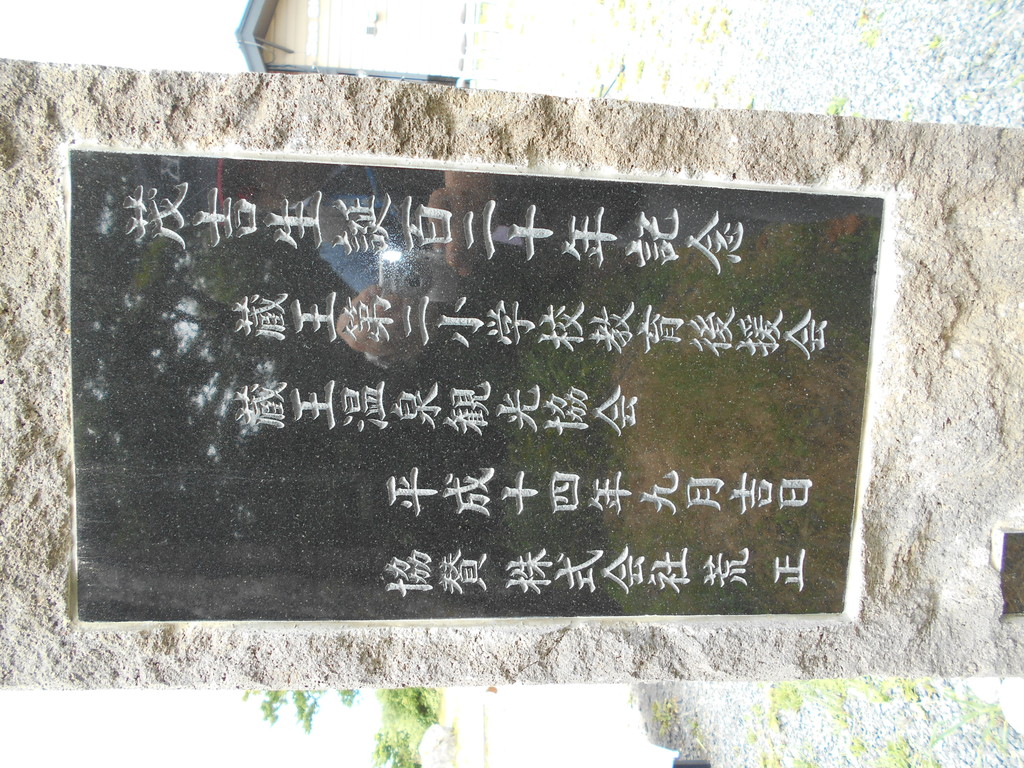 茂吉生誕百二十年記念
蔵王第二小学校教育後援会
蔵王温泉観光協会
平成十四年九月吉日
協賛 株式会社荒正